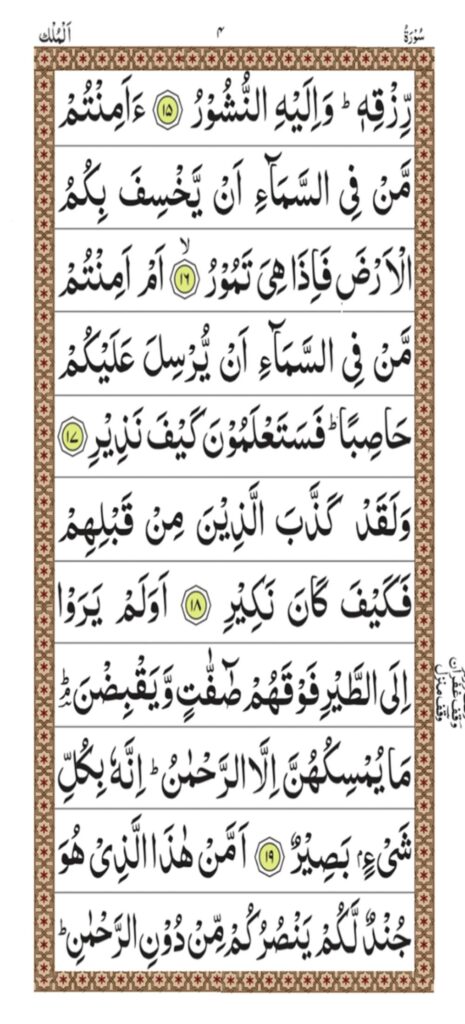 سُوْرَةُ ٤ اَلْمُلْك
رِّزْقِهٖ ؕ وَاِلَيْهِ النُّشُوْرُ ۝۱۵ ءَاَمِنْتُمْ
مَّنْ فِى السَّمَآءِ اَنْ يَّخْسِفَ بِكُمُ
الْاَرْضَ فَاِذَا هِىَ تَمُوْرُ ۙ۝۱۶ اَمْ اَمِنْتُمْ
مَّنْ فِى السَّمَآءِ اَنْ يُّرْسِلَ عَلَيْكُمْ
حَاصِبًا ؕ فَسَتَعْلَمُوْنَ كَيْفَ نَذِيْرِ ۝۱۷
وَلَقَدْ كَذَّبَ الَّذِيْنَ مِنْ قَبْلِهِمْ
فَكَيْفَ كَانَ نَكِيْرِ ۝۱۸ اَوَلَمْ يَرَوْا
اِلَى الطَّيْرِ فَوْقَهُمْ صٰٓفّٰتٍ وَّيَقْبِضْنَ ؕ
مَا يُمْسِكُهُنَّ اِلَّا الرَّحْمٰنُ ؕ اِنَّهٗ بِكُلِّ
شَىْءٍۭ بَصِيْرٌ ۝۱۹ اَمَّنْ هٰذَا الَّذِىْ هُوَ
جُنْدٌ لَّكُمْ يَنْصُرُكُمْ مِّنْ دُوْنِ الرَّحْمٰنِ ؕ
وقف غفران
وقف منزل